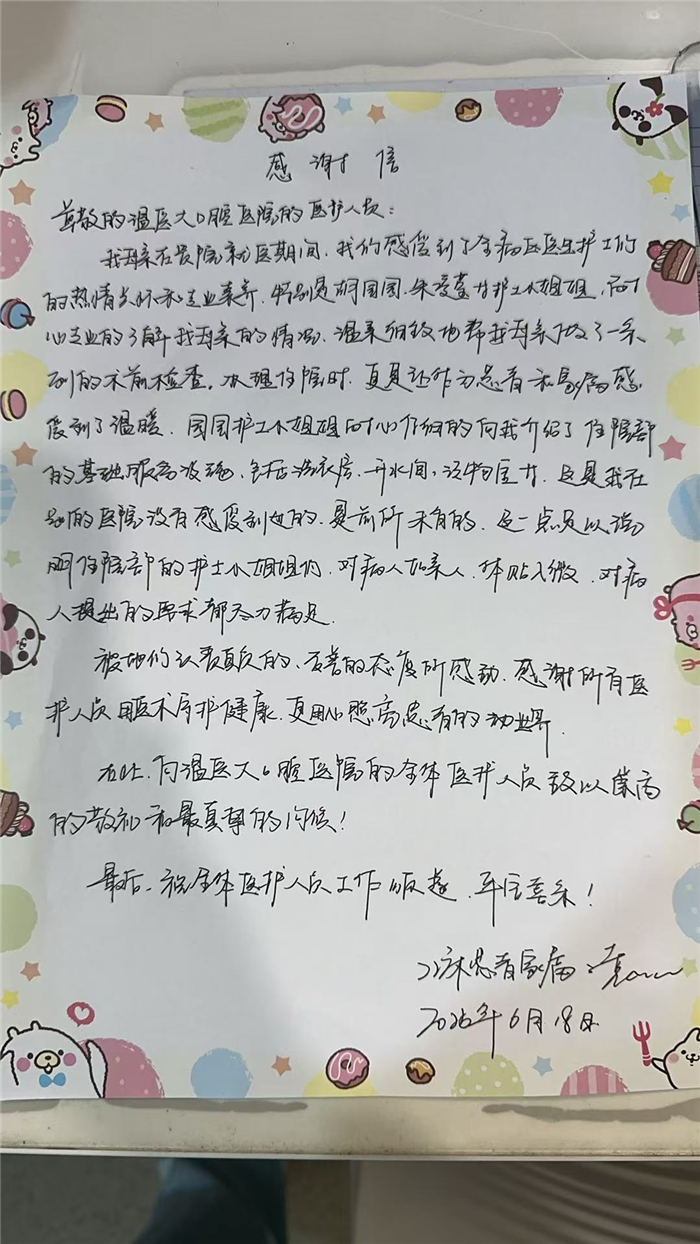 感谢信
尊敬的温医大口腔医院的医护人员：
我母亲在贵院就医期间，我们感受到了全病区医生护工们
的热情关怀和专业素养，特别是胡园园、朱爱 护士小姐姐，耐
心专业的了解我母亲的情况，温柔细致地帮我母亲做了一系
列的术前检查。办理住院时，真是让作为患者和家属感
受到了温暖，园园护士小姐姐耐心仔细的向我介绍了住院部
的基础服务设施，包括洗衣房、开水间、 ，这是我在
别的医院没有感受到过的，是前所未有的，这一点足以说
明住院部的护士小姐姐们，对病人如亲人，体贴入微，对病
人提出的要求都尽力满足。
被她们认真负责的、友善的态度所感动，感谢所有医
护人员用医术守护健康，更用心照亮患者的 。
在此，向温医大口腔医院的全体医护人员致以崇高
的敬礼和最真挚的问候！
最后，祝全体医护人员工作顺遂，平安喜乐！
床患者家属：
2026年6月18日